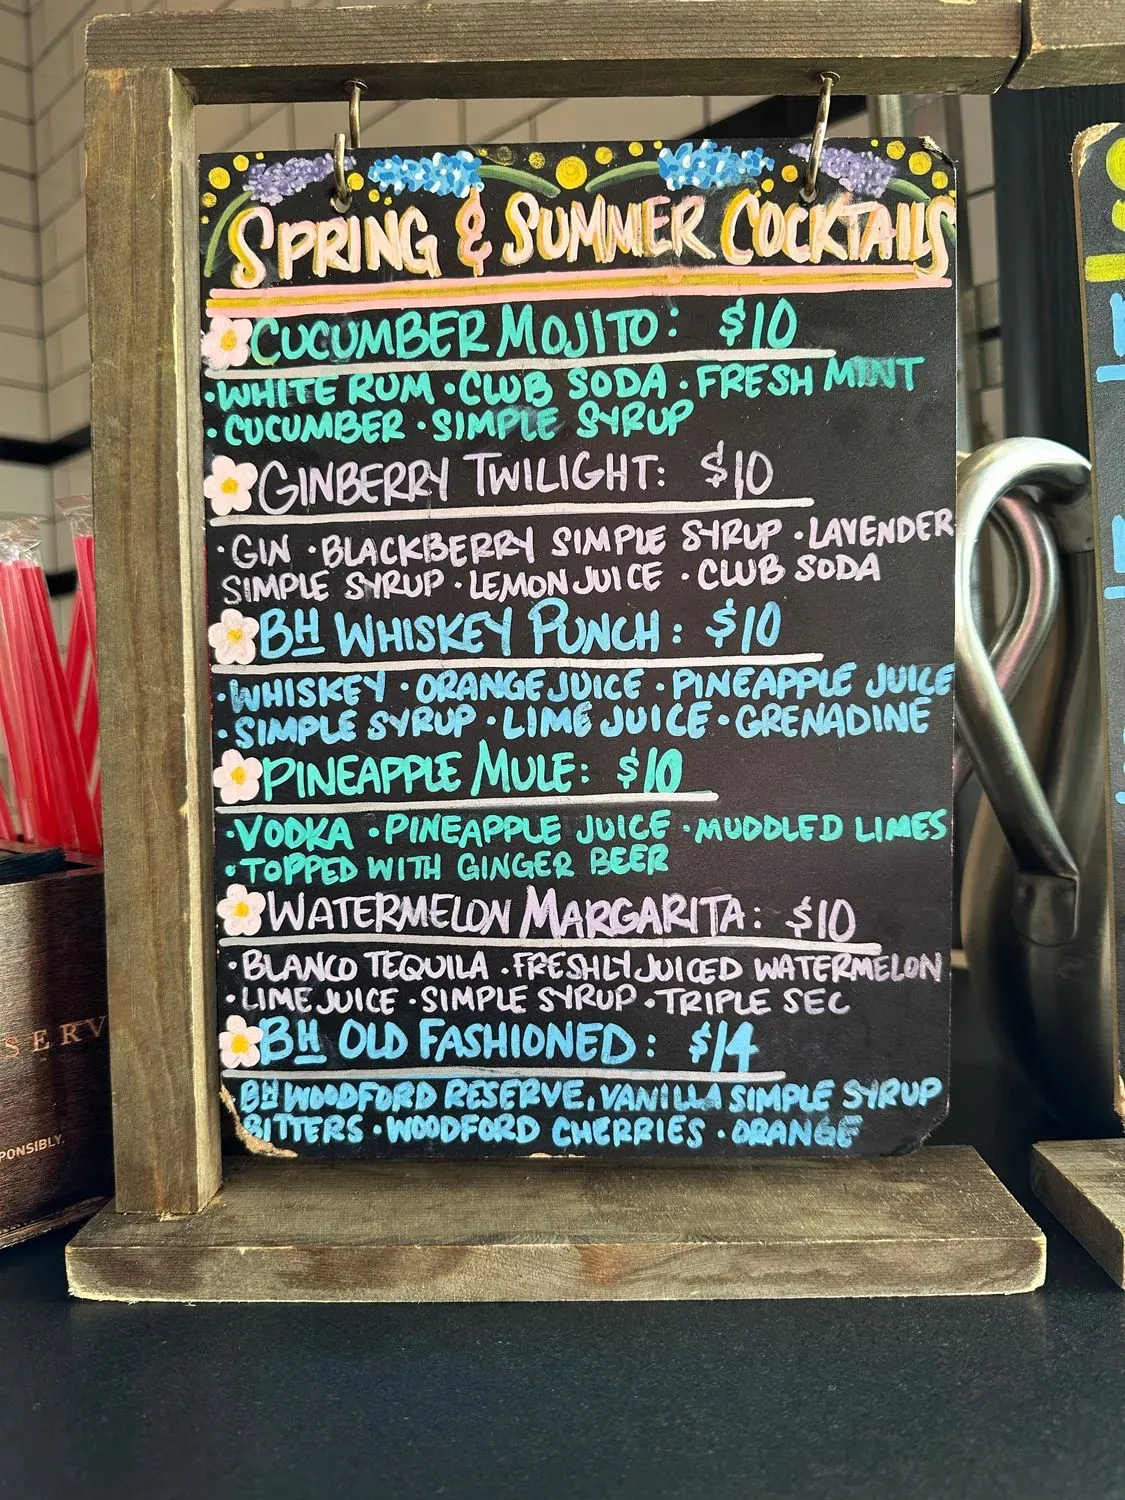 SPRING & SUMMER COCKTAILS
CUCUMBER MOJITO: $10
•WHITE RUM •CLUB SODA •FRESH MINT
•CUCUMBER •SIMPLE SYRUP
GINBERRY TWILIGHT: $10
•GIN •BLACKBERRY SIMPLE SYRUP •LAVENDER
SIMPLE SYRUP •LEMON JUICE •CLUB SODA
BH WHISKEY PUNCH: $10
•WHISKEY •ORANGE JUICE •PINEAPPLE JUICE
•SIMPLE SYRUP •LIME JUICE •GRENADINE
PINEAPPLE MULE: $10
•VODKA •PINEAPPLE JUICE •MUDDLED LIMES
•TOPPED WITH GINGER BEER
WATERMELON MARGARITA: $10
•BLANCO TEQUILA •FRESHLY JUICED WATERMELON
•LIME JUICE •SIMPLE SYRUP •TRIPLE SEC
BH OLD FASHIONED: $14
BH WOODFORD RESERVE, VANILLA SIMPLE SYRUP
BITTERS •WOODFORD CHERRIES •ORANGE
SERV
PONSIBLY.